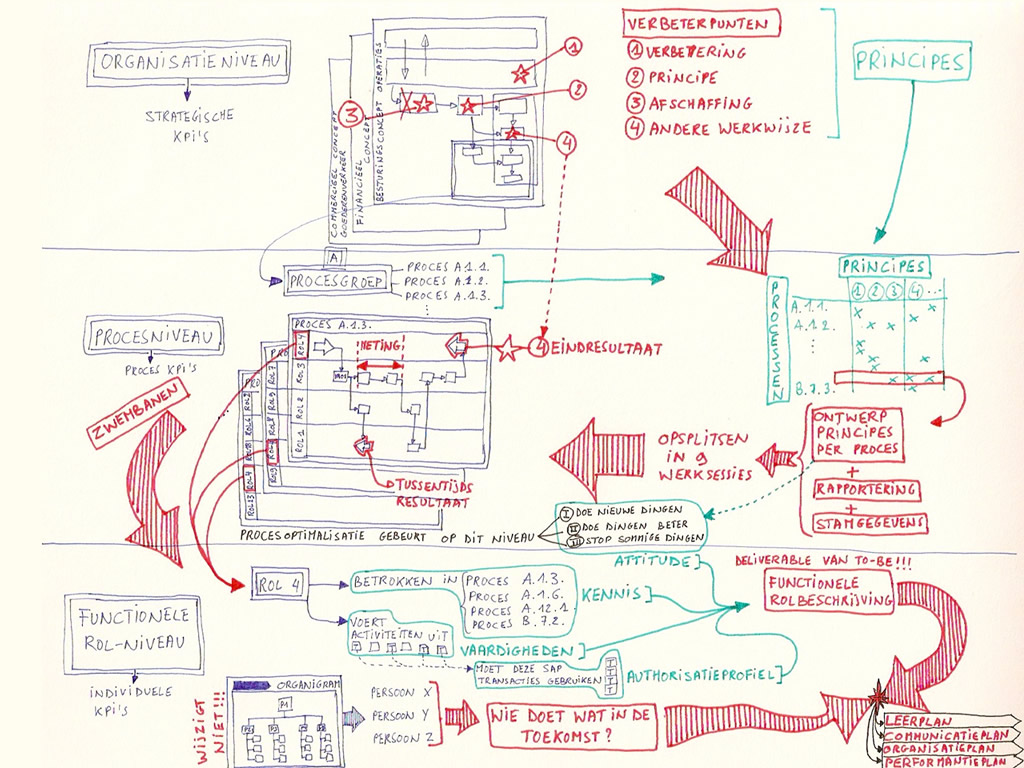 ORGANISATIENIVEAU
STRATEGISCHE
KPI'S
COMMERCIEEL CONCEPT
GOEDERENVERKEER
FINANCIEEL
CONCEPT
BESTURINGSCONCEPT OPERATIES
1
2
3
4
VERBETERPUNTEN
1 VERBETERING
2 PRINCIPE
3 AFSCHAFFING
4 ANDERE WERKWIJZE
PRINCIPES
A
PROCESGROEP
PROCES A.1.1.
PROCES A.1.2.
PROCES A.1.3.
PRINCIPES
1 2 3 4 ...
PROCESSEN
A.1.1.
A.1.2.
B.7.3.
PROCESNIVEAU
PROCES KPI'S
PROCES A.1.3.
PRO
PRO
ROL 4
ROL 3
ROL 2
ROL 1
ROL 7
ROL 13
METING
4 EINDRESULTAAT
TUSSENTIJDS
RESULTAAT
ZWEMBANEN
OPSPLITSEN
IN 9
WERKSESSIES
ONTWERP
PRINCIPES
PER PROCES
+
RAPPORTERING
+
STAMGEGEVENS
PROCESOPTIMALISATIE GEBEURT OP DIT NIVEAU
I DOE NIEUWE DINGEN
II DOE DINGEN BETER
III STOP SOMMIGE DINGEN
FUNCTIONELE
ROL-NIVEAU
INDIVIDUELE
KPI'S
ROL 4
BETROKKEN IN
PROCES A.1.3.
PROCES A.1.6.
PROCES A.12.1.
PROCES B.7.2.
VOERT
ACTIVITEITEN UIT
MOET DEZE SAP
TRANSACTIES GEBRUIKEN
ATTITUDE
KENNIS
VAARDIGHEDEN
AUTHORISATIEPROFIEL
DELIVERABLE VAN TO-BE!!!
FUNCTIONELE
ROLBESCHRIJVING
WIJZIGT
NIET!!!
ORGANIGRAM
PERSOON X
PERSOON Y
PERSOON Z
WIE DOET WAT IN DE
TOEKOMST?
LEERPLAN
COMMUNICATIEPLAN
ORGANISATIEPLAN
PERFORMANTIEPLAN